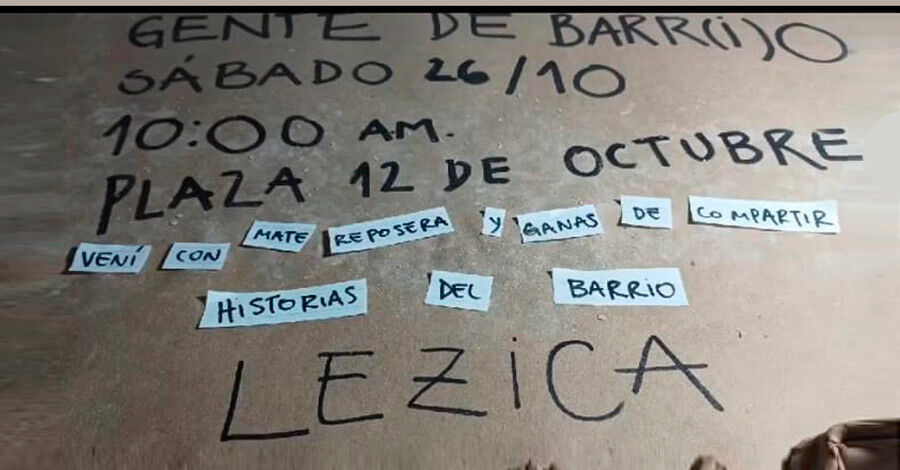 GENTE DE BARR(i)O
SÁBADO 26/10
10:00 A.M.
PLAZA 12 DE OCTUBRE
VENÍ CON MATE REPOSERA Y GANAS DE COMPARTIR
HISTORIAS DEL BARRIO
LEZICA